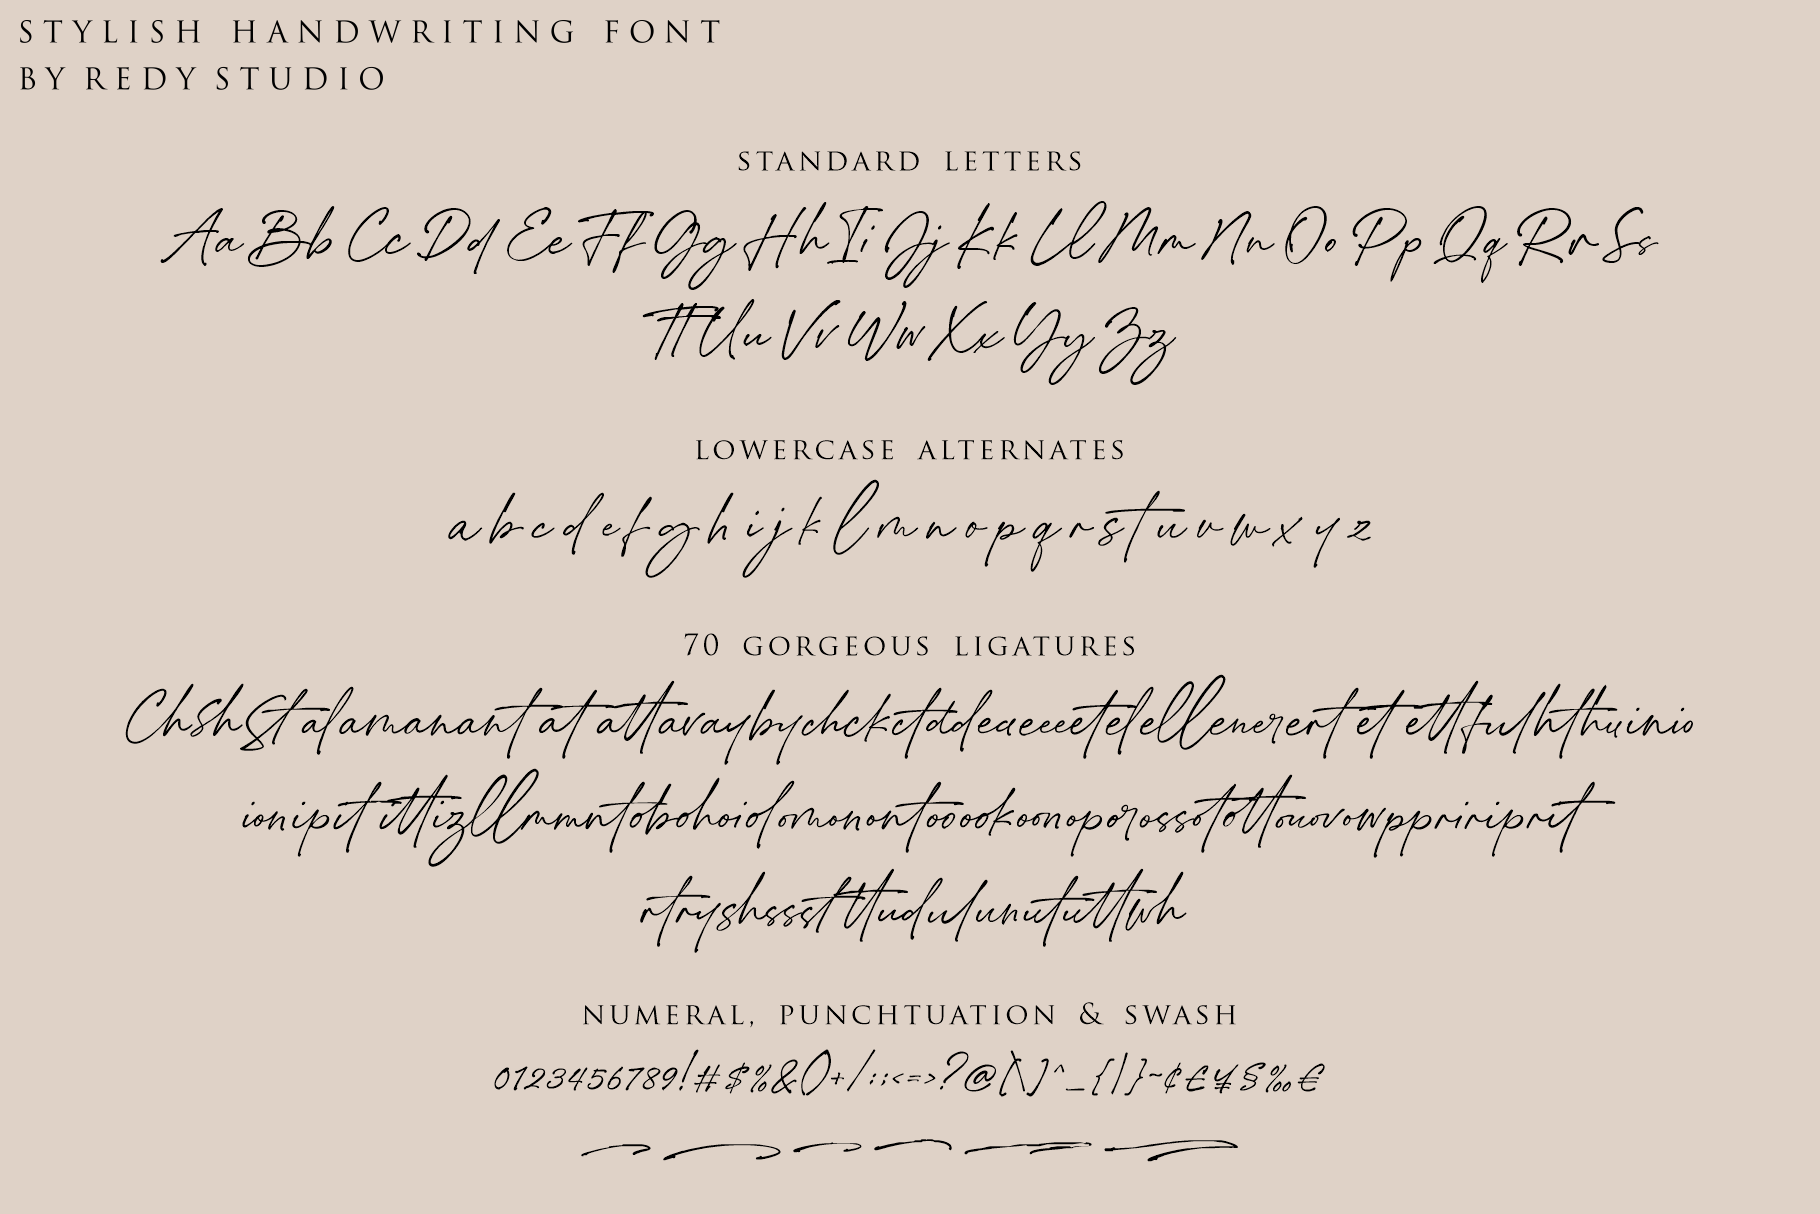 STYLISH HANDWRITING FONT
BY REDY STUDIO
STANDARD LETTERS
Aa Bb Cc Dd Ee Ff Gg Hh Ii Jj Kk Ll Mm Nn Oo Pp Qq Rr Ss
Tt Uu Vv Ww Xx Yy Zz
LOWERCASE ALTERNATES
a b c d e f g h i j k l m n o p q r s t u v w x y z
70 GORGEOUS LIGATURES
ChShStalamanantatattavaybychckctddeaeeeetelellenerertetettfulhthuinio
ionipitittizllmmntobohoidomonontooookoonoporossotottouovowppririprit
rtryshssstttudulunututtwh
NUMERAL, PUNCHTUATION & SWASH
0123456789!#$%&()+/:;<=>?@[\]^_{|}~¢£¥§‰€